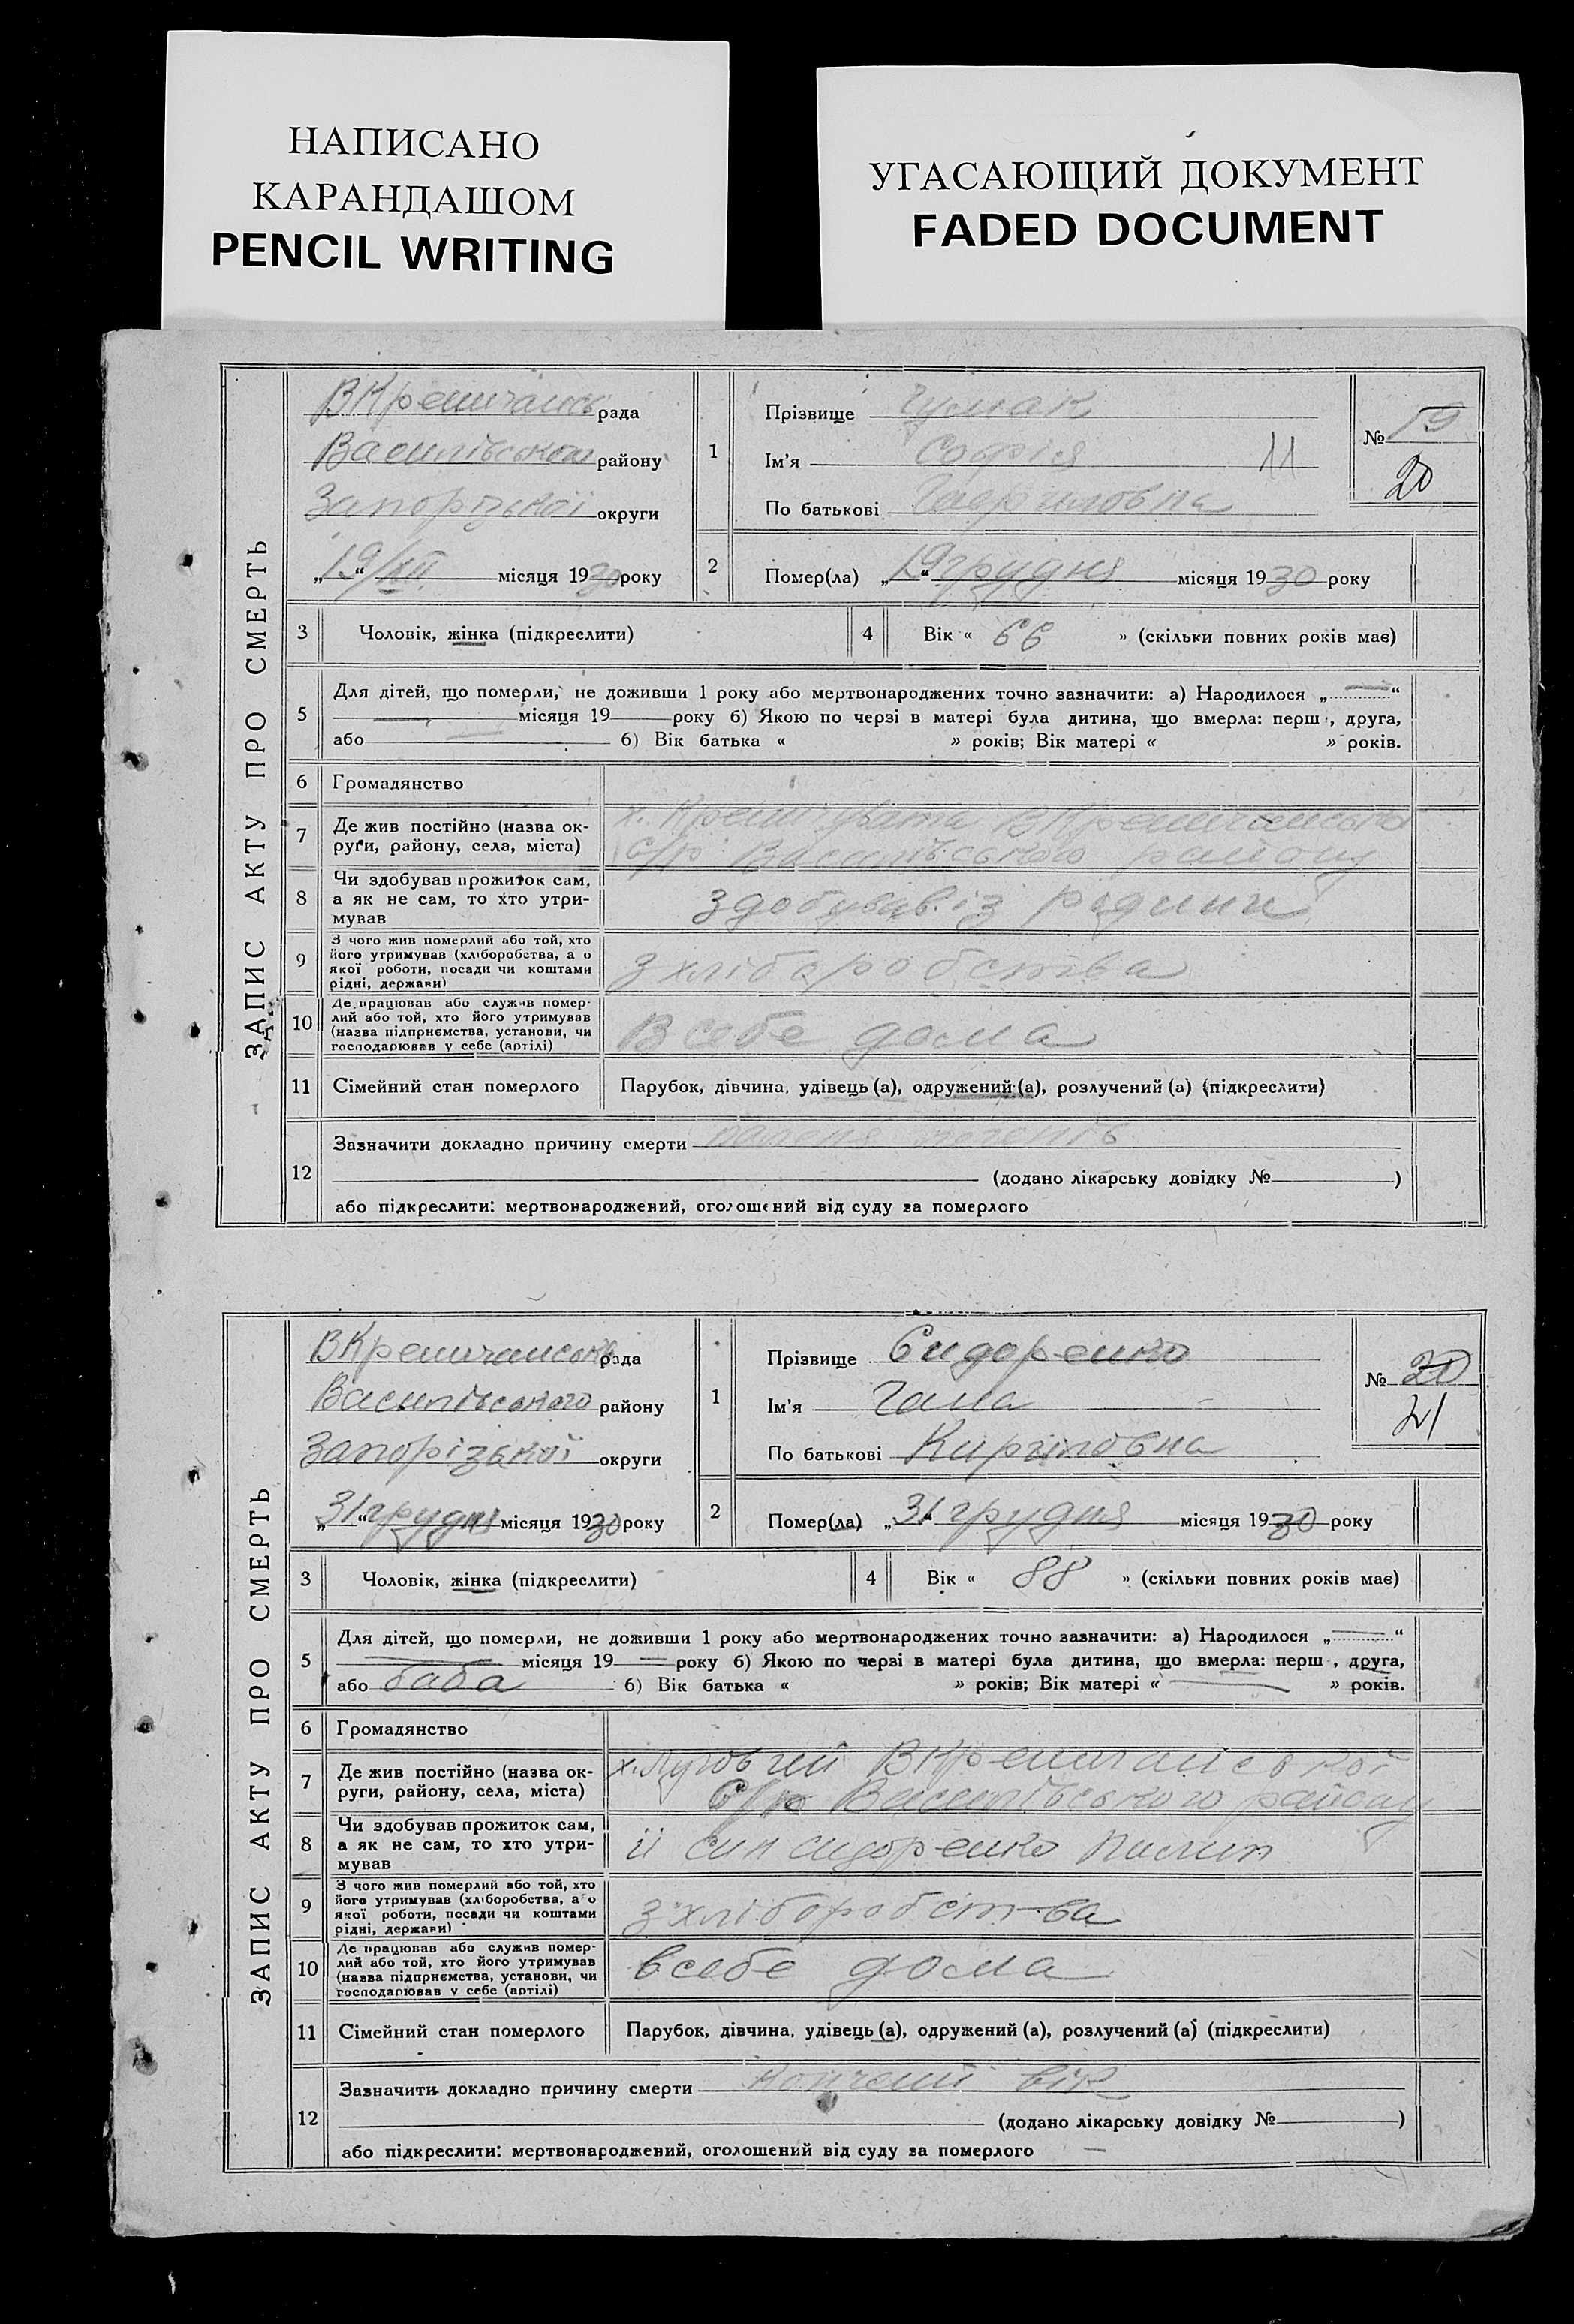 НАПИСАНО
КАРАНДАШОМ
PENCIL WRITING
УГАСАЮЩИЙ ДОКУМЕНТ
FADED DOCUMENT
ЗАПИС АКТУ ПРО СМЕРТЬ
рада
Василівського району
Запорізької округи
„19“/XII місяця 1930 року
1
Прізвище Чумак
Ім'я Софія 11
По батькові
№ 19
20
2
Помер(ла) „19“ грудня місяця 1930 року
3 Чоловік, жінка (підкреслити)
4 Вік « 66 » (скільки повних років має)
5 Для дітей, що померли, не доживши 1 року або мертвонароджених точно зазначити: а) Народилося „ “
місяця 19 року б) Якою по черзі в матері була дитина, що вмерла: перш , друга,
або б) Вік батька « » років; Вік матері « » років.
6 Громадянство
7 Де жив постійно (назва ок-
руги, району, села, міста)
х.
с/р Василівського району
8 Чи здобував прожиток сам,
а як не сам, то хто утри-
мував
здобував із родини
9 З чого жив померлий або той, хто
його утримував (хліборобства, а о
якої роботи, посади чи коштами
рідні, держави)
з хліборобства
10 Де працював або служив помер-
лий або той, хто його утримував
(назва підприємства, установи, чи
господарював у себе (артілі)
В себе дома
11 Сімейний стан померлого Парубок, дівчина, удівець (а), одружений (а), розлучений (а) (підкреслити)
12 Зазначити докладно причину смерти
(додано лікарську довідку № )
або підкреслити: мертвонароджений, оголошений від суду за померлого
ЗАПИС АКТУ ПРО СМЕРТЬ
рада
Василівського району
Запорізької округи
„31“ грудня місяця 1930 року
1
Прізвище Сидоренко
Ім'я Гана
По батькові Кириловна
№ 20
21
2
Помер(ла) „31 грудня місяця 1930 року
3 Чоловік, жінка (підкреслити)
4 Вік « 88 » (скільки повних років має)
5 Для дітей, що померли, не доживши 1 року або мертвонароджених точно зазначити: а) Народилося „ “
місяця 19 року б) Якою по черзі в матері була дитина, що вмерла: перш , друга,
або баба б) Вік батька « » років; Вік матері « » років.
6 Громадянство
7 Де жив постійно (назва ок-
руги, району, села, міста)
х.
С/р Василівського району
8 Чи здобував прожиток сам,
а як не сам, то хто утри-
мував
її син сидоренко Пилип
9 З чого жив померлий або той, хто
його утримував (хліборобства, а о
якої роботи, посади чи коштами
рідні, держави)
з хліборобства
10 Де працював або служив помер-
лий або той, хто його утримував
(назва підприємства, установи, чи
господарював у себе (артілі)
всебе дома
11 Сімейний стан померлого Парубок, дівчина, удівець (а), одружений (а), розлучений (а) (підкреслити)
12 Зазначити докладно причину смерти вік
(додано лікарську довідку № )
або підкреслити: мертвонароджений, оголошений від суду за померлого